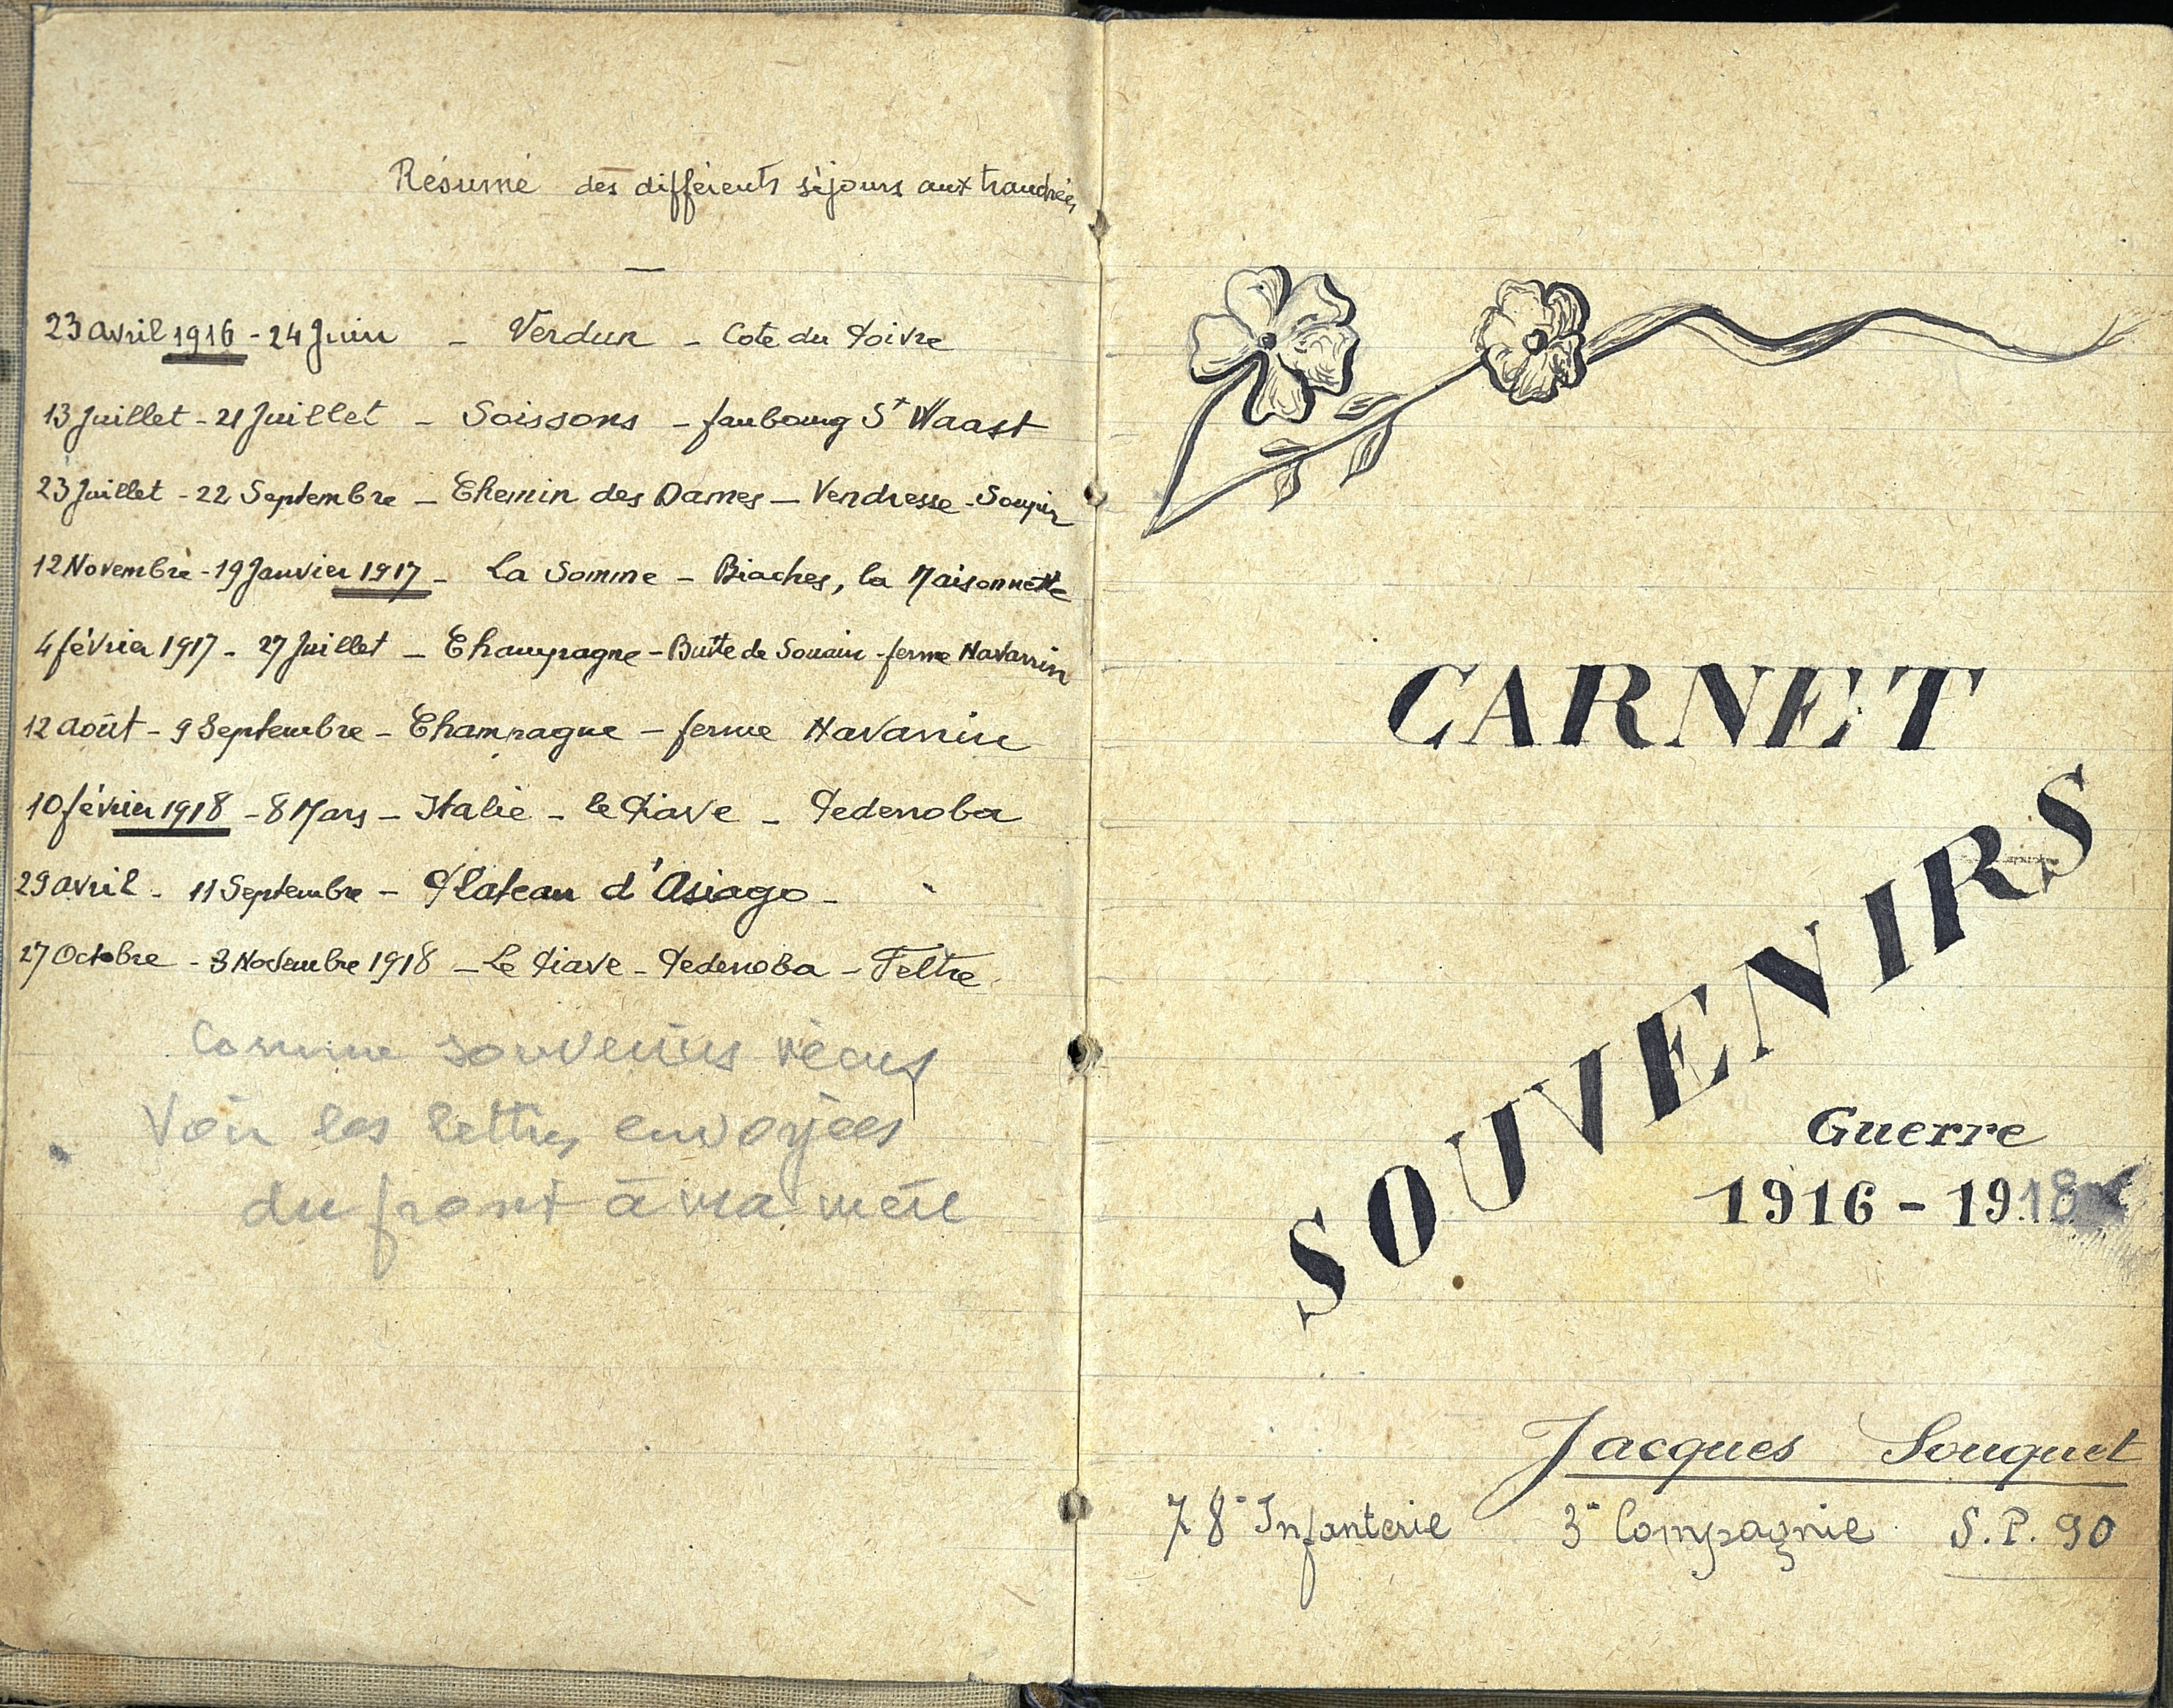 Résumé des différents séjours aux tranchées
23 avril 1916 - 24 Juin - Verdun - Cote du Poivre
13 Juillet - 21 Juillet - Soissons - faubourg St Waast
23 Juillet - 22 Septembre - Chemin des Dames - Vendresse - Soupir
12 Novembre - 19 Janvier 1917 - La Somme - Biaches, la Maisonnette
4 février 1917 - 27 Juillet - Champagne - Butte de Souain - ferme Navarrin
12 Août - 9 Septembre - Champagne - ferme Navarrin
10 février 1918 - 8 Mars - Italie - le Piave - Pedenoba
29 avril - 11 Septembre - Plateau d'Asiago -
27 Octobre - 3 Novembre 1918 - Le Piave - Pedenoba - Feltre
Comme souvenirs vécus
Voir les lettres envoyées
du front à ma mère
CARNET
SOUVENIRS
Guerre
1916 - 1918
Jacques Souquet
78e Infanterie 3e Compagnie S.P. 90